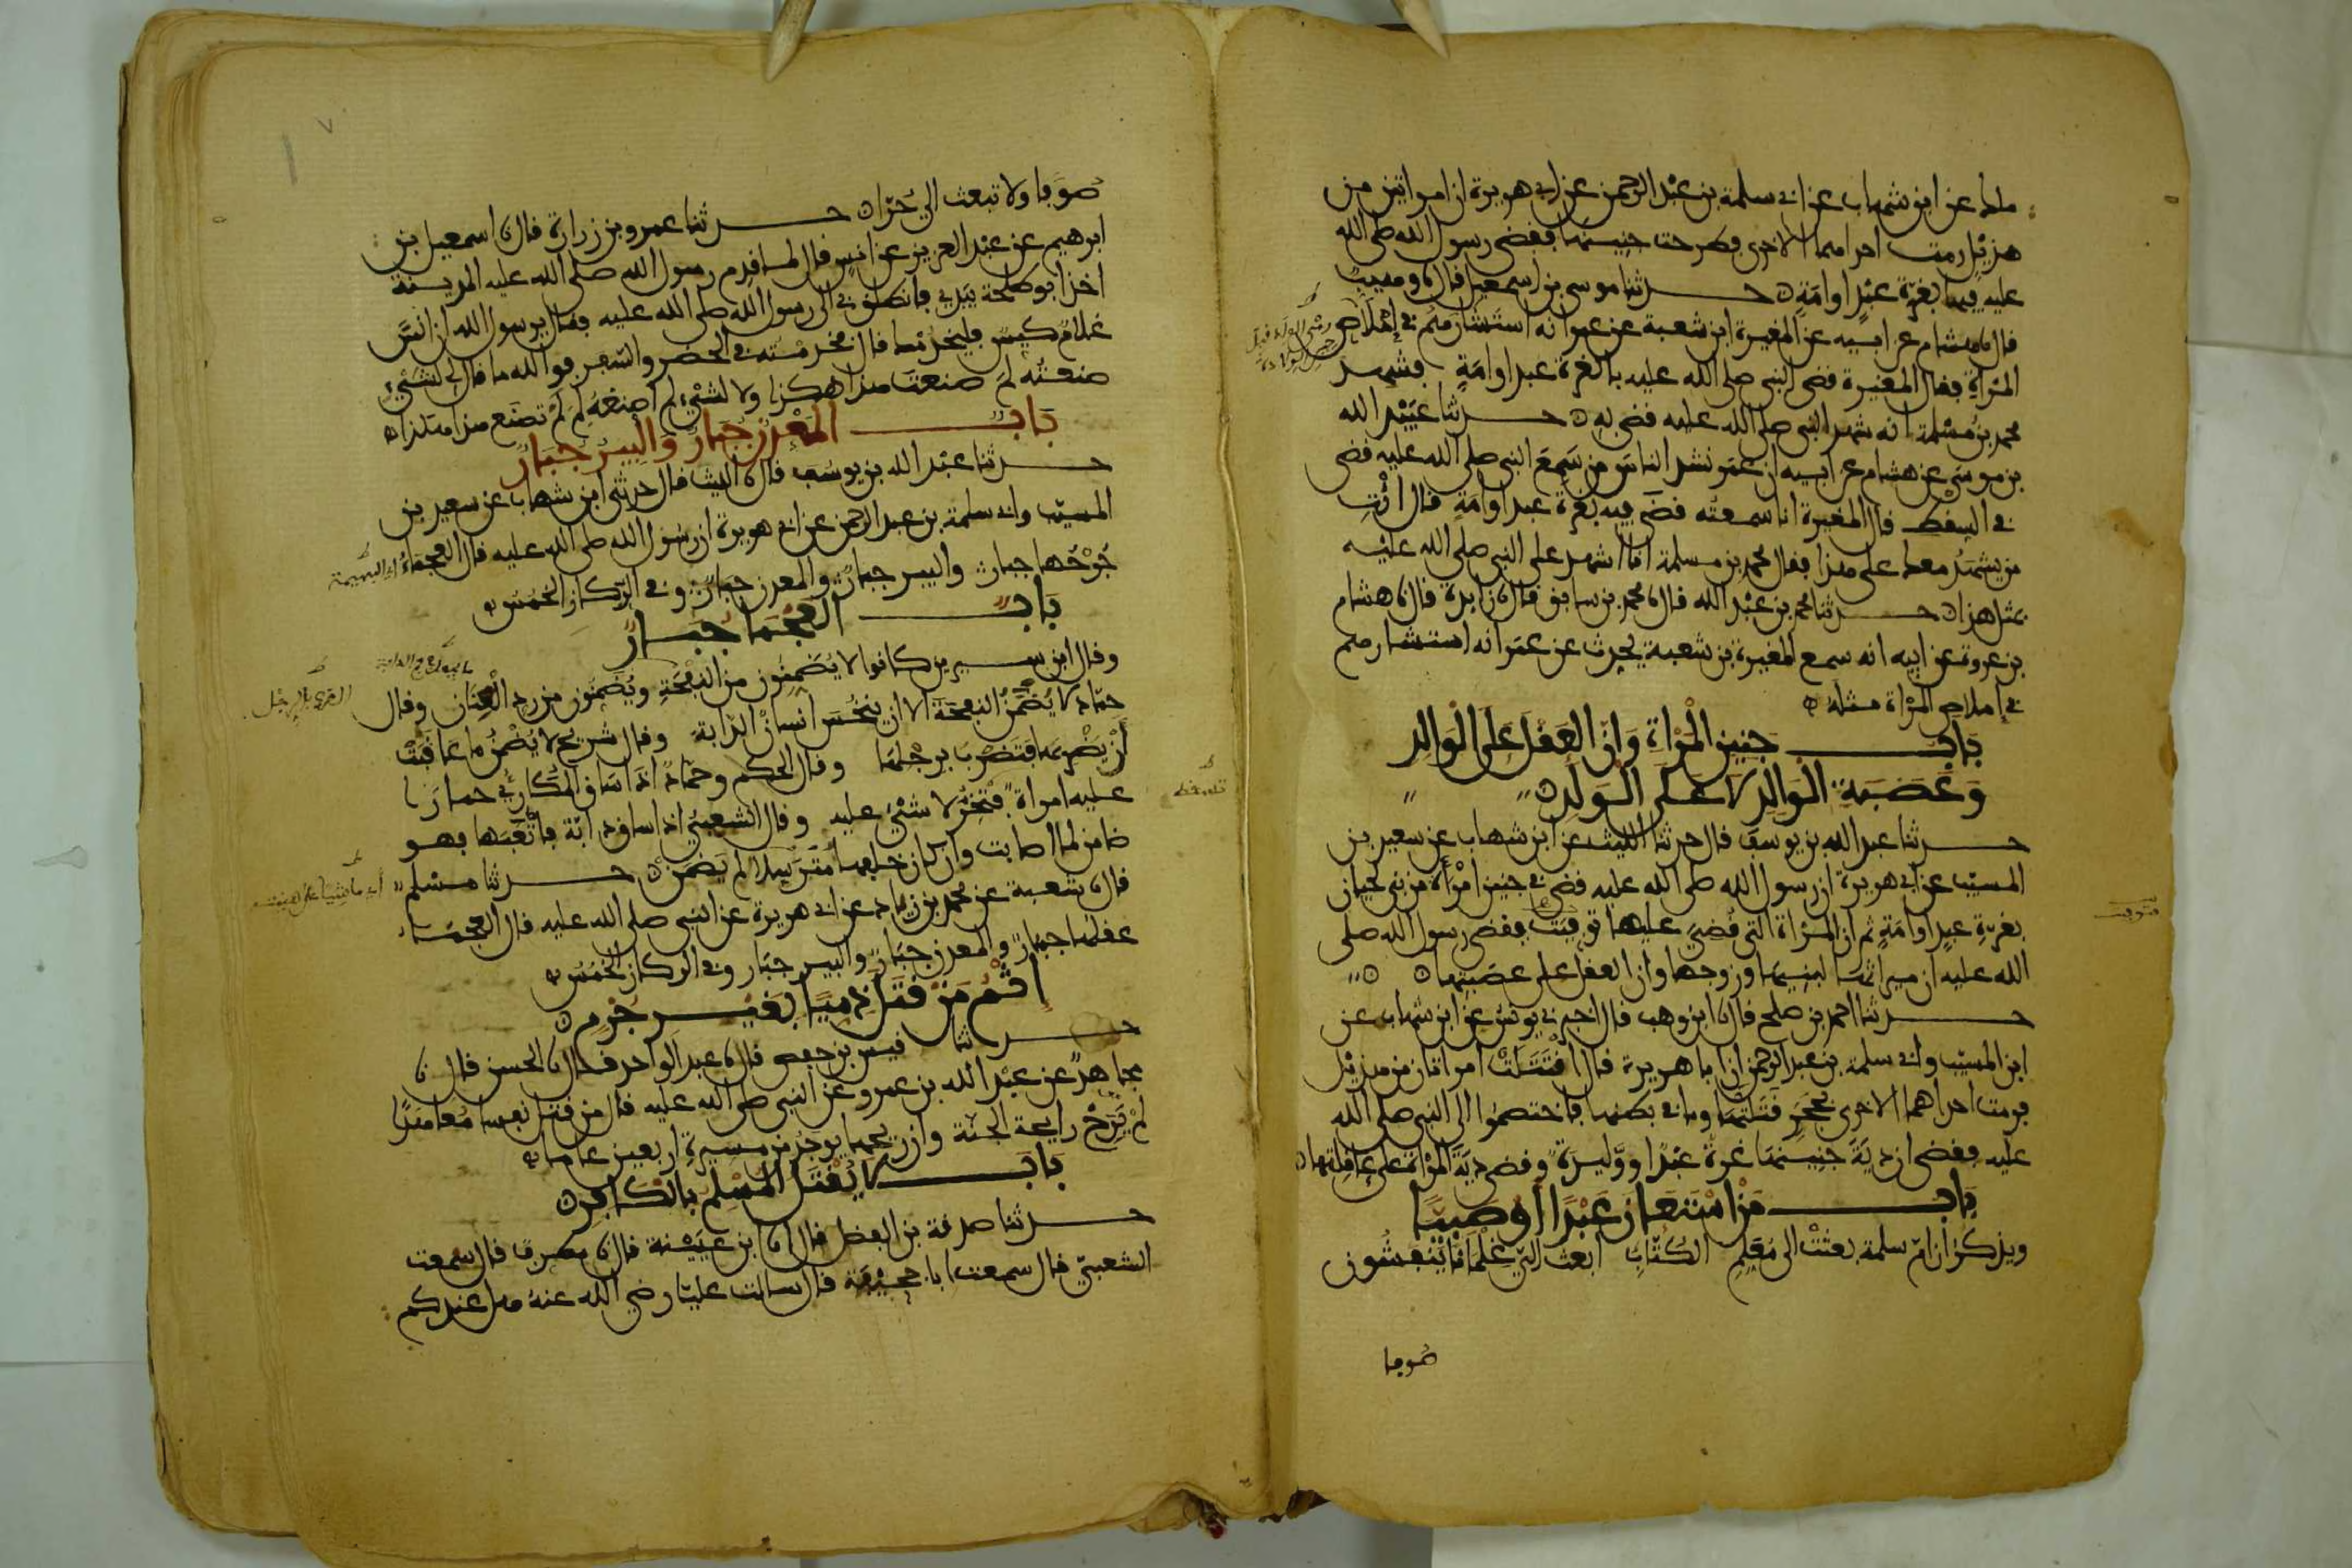 ملك عن ابن شهاب عن ابي سلمة بن عبد الرحمن عن ابي هريرة ان امراتين من
هذيل رمت احداهما الاخرى فطرحت جنينها فقضى رسول الله صلى الله
عليه فيها بغرّة عبدٍ او امَةٍ حدثنا موسى بن اسمعيل قال نا وهيب
قال نا هشام عن ابيه عن المغيرة ابن شعبة عن عمر انه استشارهم في إملاص
المرْاةِ فقال المغيرة قضى النبي صلى الله عليه بالغرة عبد او امَةٍ فشهد
محمد بن مسْلمة انه شهد النبي صلى الله عليه قضى به حدثنا عبَيْد الله
بن موسَى عن هشام عن ابيه ان عمَر نشد الناسَ من سَمِعَ النبي صلى الله عليه قضى
في السِقْط قال المغيرة انا سمعتُه قضَى فيه بغرة عبد او امَةٍ قال ائْتِ
من يشهَدُ معك على هذا فقال محمد بن مسلمة انا اشهد على النبي صلى الله عليْه
بمثل هذا حدثنا محمد بن عبْد الله قال نا محمد بن سابق قال نا زايدة قال نا هشام
بن عروة عن ابيه انه سمع المغيرة بن شعبة يحدث عن عمَر انه استشارهم
في إملاص المرْاة مثلَهُ
بَابُ جَنِينِ الْمَرْاةِ وَانّ العَقْلَ عَلَى الْوَالِدِ
وَعَصَبَةِ الْوَالِدِ لَا عَلَى الْوَلَدِ
حدثنا عبد الله بن يوسف قال حدثنا الليث عن ابن شهاب عن سعيد بن
المسيّب عن ابي هريرة ان رسول الله صلى الله عليه قضى في جنين امْرَأة من بني لحيان
بغرّةِ عبدٍ او امَةٍ ثم ان المرْاة التي قُضيَ عليها توفيَتْ فقضى رسول الله صلى
الله عليه ان ميراثها لبنيها وزوجها وان العقل على عصَبتها
حدثنا احمد بن صلح قال نا ابن وهب قال اخبرني يونس عن ابن شهاب عن
ابن المسيّب وابي سلمة بن عبد الرحمن ان ابا هريرة قال اقْتَتَلَتْ امراتان من هذيْل
فرمت احداهما الاخرى بحجَرٍ قتلَتْهَا وما في بطنها فاختصَموا الى النبي صلى الله
عليه فقضى ان ديَةَ جنينها غرة عبْدٌ او وَليدَة وقضى ديَةَ المرْاة على عاقلتها
بَابُ مَنْ اسْتَعَانَ عَبْدًا أوْ صَبيًا
ويذكرُ ان امّ سلمة بعثتْ الى مُعَلِمِ الكُتّابِ ابعث اليّ غلمانا يَنْفشُون
صُوفا
صُوفا ولا تبعث الي حُرّا حدثنا عمرو بن زرارة قال نا اسمعيل بن
ابرهيم عن عبْد العزيز عن انسٍ قال لما قدم رسول الله صلى الله عليه المدينة
اخذ ابو طلحة بيَدي فانطلق بي الى رسول الله صلى الله عليه فقال يرسول الله ان انسًا
غلامٌ كيسٌ فليخدُمْك قال فخدمْته في الحضَر والسّفر فو الله ما قال لي لشَيْءٍ
صنعتُه لِمَ صنعتَ هذا هكذا ولا لشيْءٍ لم اصنعْهُ لِمَ لمْ تصْنَع هذا هكذا
بَابُ الْمَعْدِنُ جُبَارٌ وَالْبِيرُ جُبَارٌ
حدثنا عبْد الله بن يوسُف قال نا الليث قال حدثني ابن شهاب عن سعيد بن
المسيّب وابي سلمة بن عبد الرحمن عن ابي هريرة ان رسُول الله صلى الله عليه قال العجْماءُ
جُرْحُها جبارٌ والبير جبارٌ والمعدن جبَارٌ وفي الرّكاز الخمُسُ
بَابُ العَجْمَا جُبَارٌ
وقال ابن سيرين كانوا لا يُضَمِنُون من النفْحَةِ ويُضَمِنون من ردِ الْعِنَانِ وقال
حمّاد لا يُضْمَنُ النفحَة الا ان ينخُسَ انسانٌ الدّابة وقال شريح لا يُضْمَنُ ما عَاقبَتْ
أنْ يَضْربَهَا فتَضْرِبَ برجْلهَا وقال الحكم وحمّادٌ اذا سَاق المُكاريْ حمارًا
عليه امراة فتخرُّ لا شيْءَ عليه وقال الشعبيُّ اذا ساق دابّة فأتْعَبَها فهو
ضامن لما اصابت وان كان خلفها مُتَرَسِلا لم يَضمَنْ حدثنا مسْلم
قال نا شعبة عن محمد بن زيَاد عن ابي هريرة عن النبي صلى الله عليه قال العجمَاءُ
عقلُها جبَارٌ والمعدن جبَارٌ والبير جبَار وفي الركاز الخمُسُ
إثْمُ مَنْ قَتَلَ ذِميًّا بِغَيْرِ جُرْمٍ
حدثنا قيس بن حفص قال نا عبد الواحد قال نا الحسن قال نا
مجاهدٌ عن عبْد الله بن عمرو عن النبي صلى الله عليه قال من قتل نفسا مُعاهَدًا
لمْ يَرَحْ رايحة الجنّة وان ريحها يوجَدُ من مسيرةِ اربعين عاما
بَابُ لَا يُقْتَلُ الْمُسْلِمُ بِالْكَافِرِ
حدثنا صدقة بن الفضل قال انا ابن عيَيْنة قال نا مطرفٌ قال سمعت
الشعبيّ قال سمعت ابا جحيْفة قال سالت عليّا رضي الله عنهُ هل عندكم